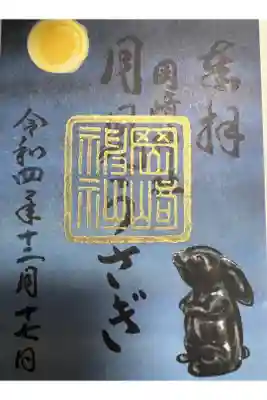 奉拝
岡崎
うさぎ
岡崎
神社
令和四年十二月十七日